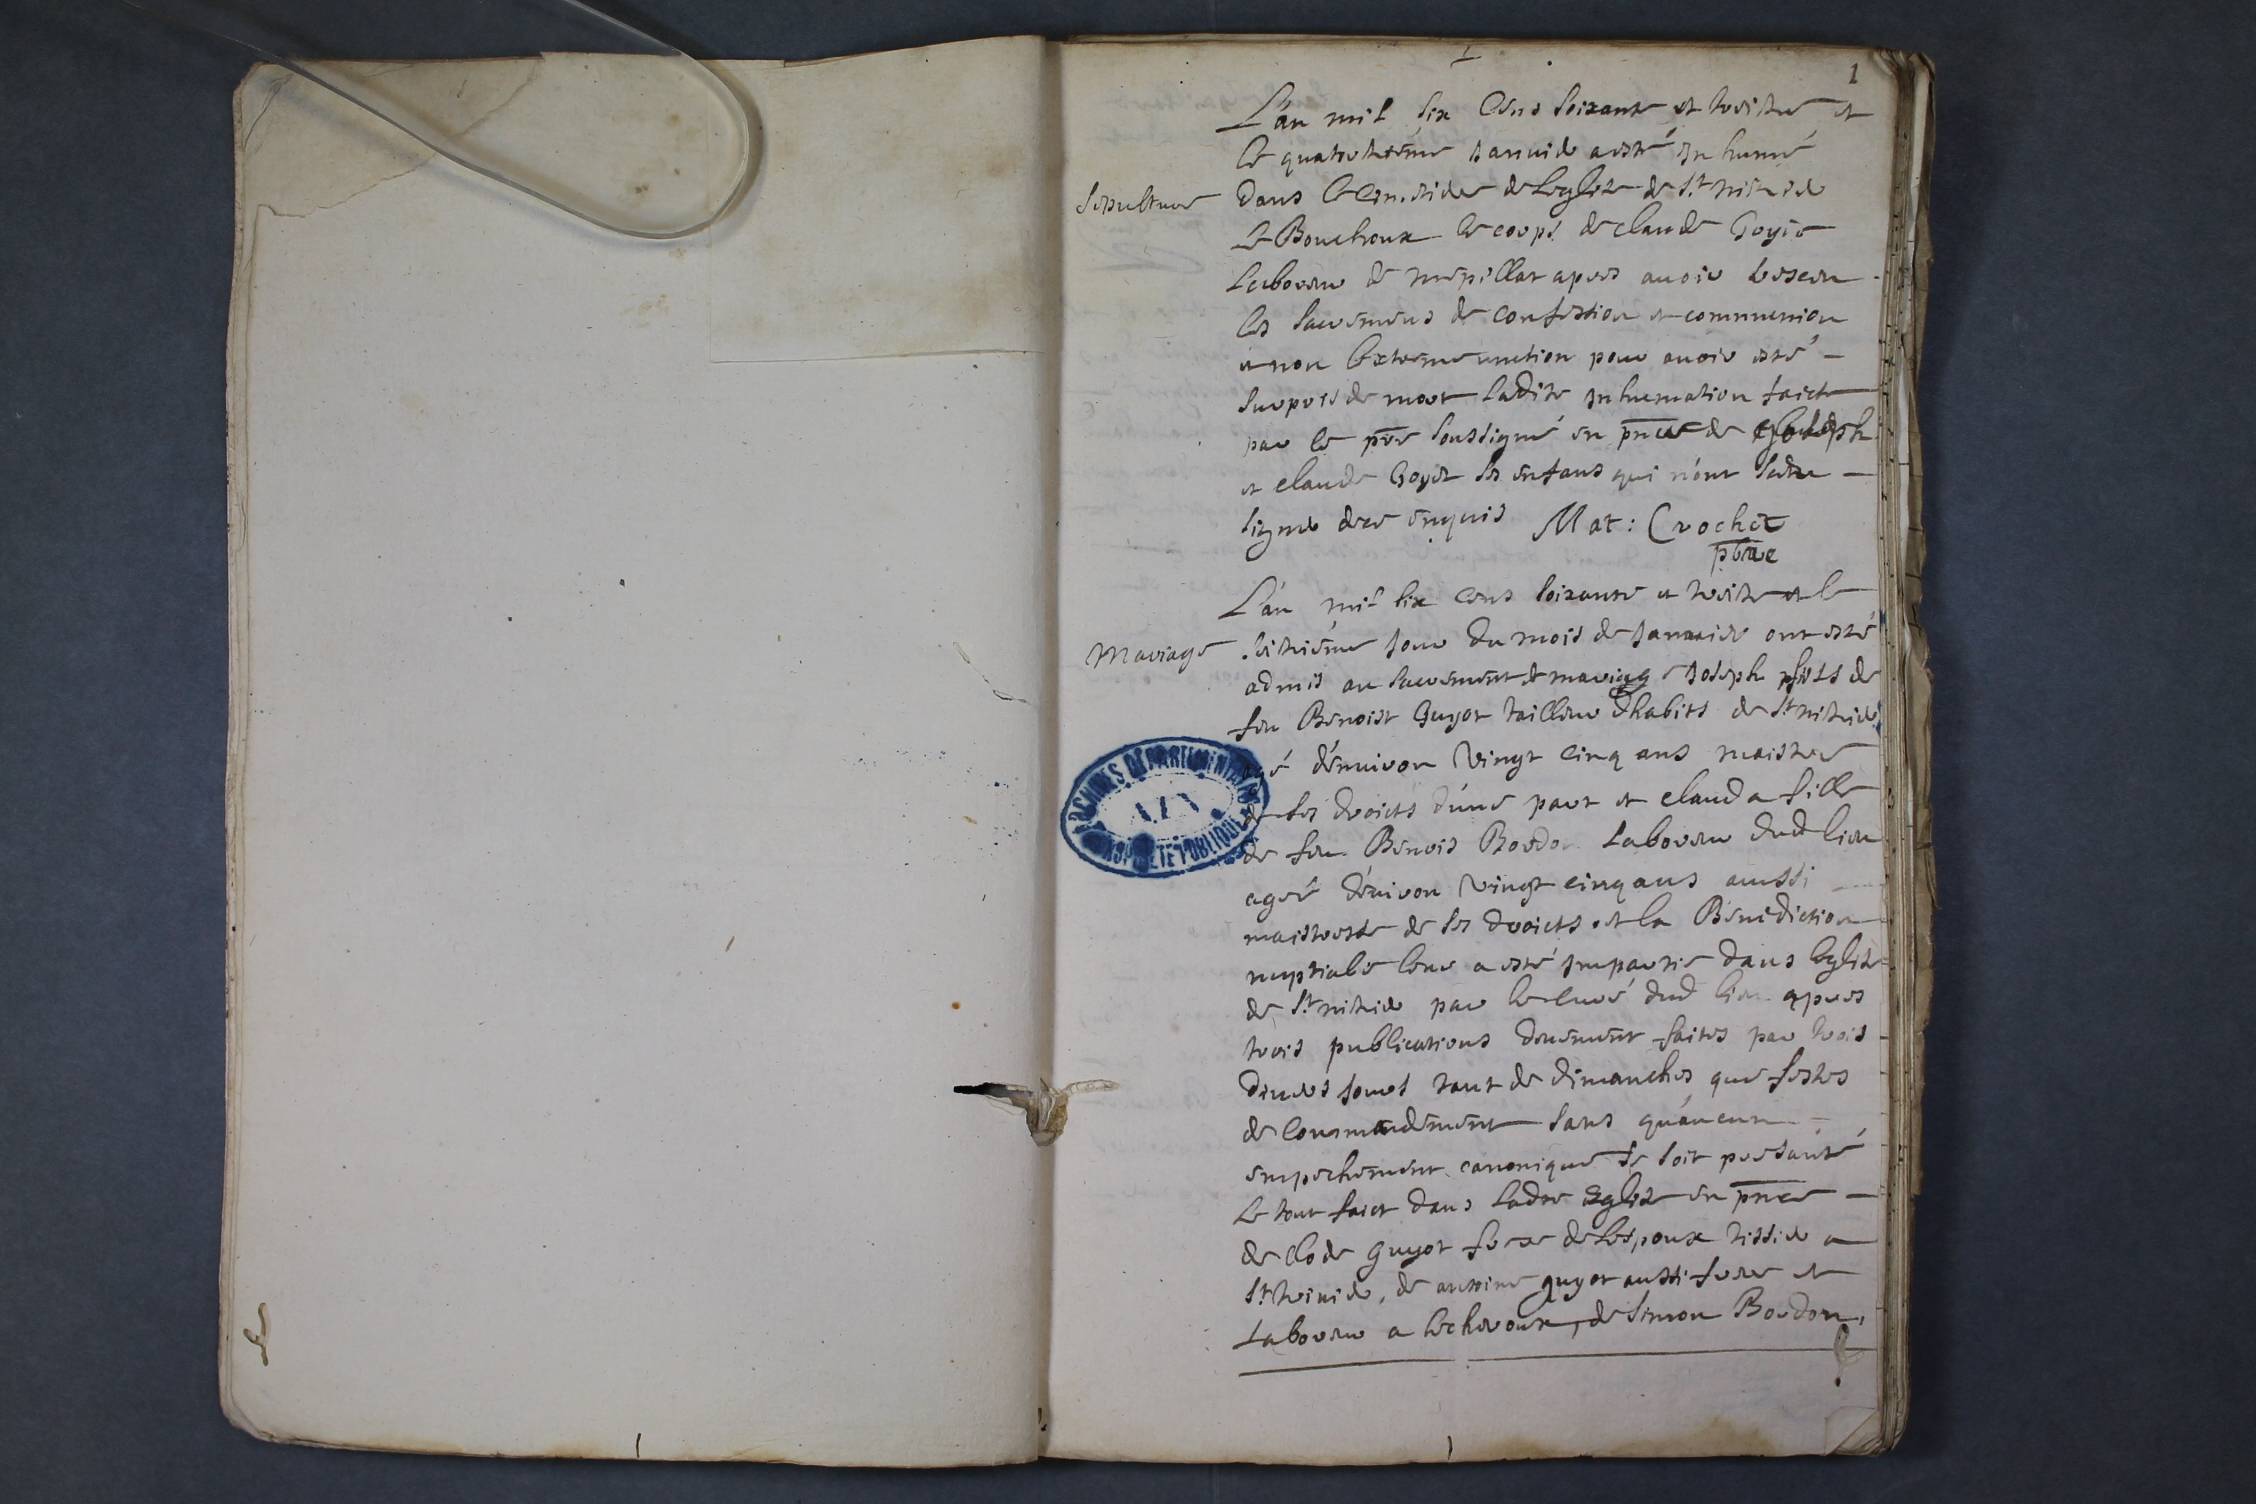 1
1
L'an mil six Cens soixante et treize et
le quatorziéme Januier a esté Inhumé
Sepulture
dans le Cimetiere de Leglise de St nizier
le Bouchoux le corps de claude Goyet
Laboureur de mepillat apres auoir receu
les sacremens de confession et communion
et non lextreme unction pour auoir esté
surpris de mort Ladite Inhumation faicte
par le pbre soussigné en pnce de Joseph
et claude Goyet ses enfans qui n'ont sceu
signer de ce enquis Mat: Crochet
pbre
L'an mil six cens soixante et treize et le
Mariage
seiziéme Jour du mois de Januier ont esté
admis au sacrement de mariage Joseph fils de
feu Benoist Guyot tailleur dhabits de St nizier
agé d'enuiron Vingt cinq ans maistre
de ses droicts d'une part et clauda fille
de feu Benois Bordon Laboureur dud lieu
agée d'enuiron Vingt cinq ans aussi
maistresse de ses droicts et la Benediction
nuptiale leur a esté Impartie dans leglise
de St nizier par le curé dud lieu apres
trois publications deuement faites par trois
diuers Jours tant de dimanches que festes
de Commandement sans qu'aucun
empechement canonique se soit presanté
Le tout faict dans ladte Eglise en pnce
de Clode Guyot frere de lespoux tissier a
St triuier, de antoine guyot aussi frere et
Laboureur a lecheroux, de simon Bordon,
ARCHIVES DÉPARTEMENTALES
AIN
PROPRIÉTÉ PUBLIQUE